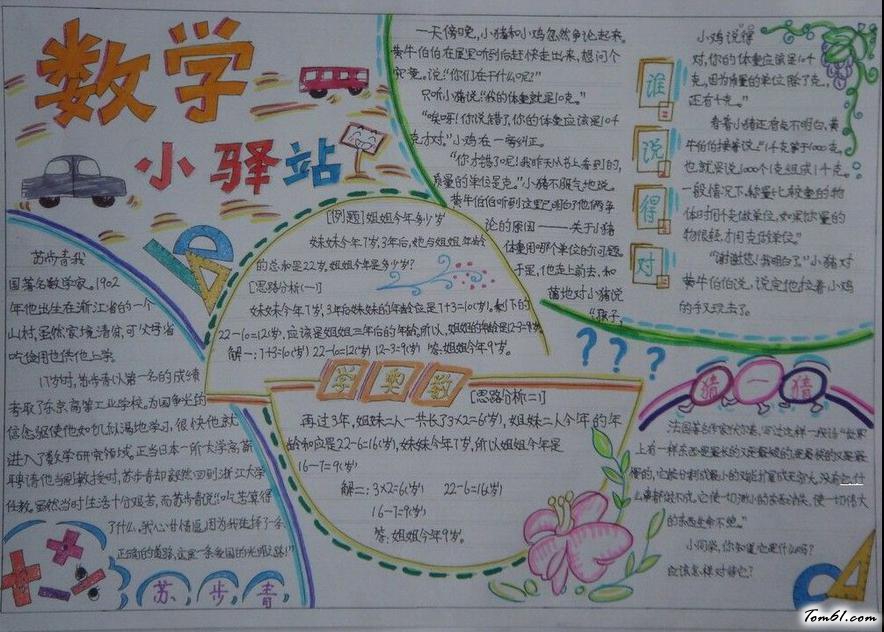 数学
小驿站
苏步青我
国著名数学家。1902
年他出生在浙江省的一个
山村,虽然家境清贫,可父母省
吃俭用也供他上学。
17岁时,苏步青以第一名的成绩
考取了东京高等工业学校,为国争光的
信念驱使他如饥似渴地学习,很快他就
进入了数学研究领域。正当日本一所大学高薪
聘请他当副教授时,苏步青却毅然回到浙江大学
任教。虽然当时生活十分艰苦,而苏步青说"吃苦算得
了什么,我心甘情愿,因为我选择了一条
正确的道路,这是一条爱国的光明之路!"
苏步青
[例题]姐姐今年多少岁
妹妹今年7岁,3年后,她与姐姐年龄
的总和是22岁,姐姐今年是多少岁?
[思路分析(一)]
妹妹今年7岁,3年后妹妹的年龄应是7+3=10(岁),剩下的
22-10=12(岁),应该是姐姐三年后的年龄,所以,姐姐的年龄是12-3=9岁
解一:7+3=10(岁) 22-10=12(岁) 12-3=9(岁) 答:姐姐今年9岁。
学奥数
[思路分析(二)]
再过3年,姐妹二人一共长了3×2=6(岁),姐妹二人今年的年
龄和应是22-6=16(岁),妹妹今年7岁,所以姐姐今年是
16-7=9(岁)
解二:3×2=6(岁) 22-6=16(岁)
16-7=9(岁)
答:姐姐今年9岁。
一天傍晚,小猪和小鸡忽然争论起来。
黄牛伯伯在屋里听到后赶快走出来,想问个
究竟。说:"你们在干什么呢?"
只听小猪说:"我的体重就是10克。"
"唉呀!你说错了,你的体重应该是10千
克才对。"小鸡在一旁纠正。
"你才错了呢!我昨天从书上看到的,
质量的单位是克。"小猪不服气地说。
黄牛伯伯听到这里,明白了他俩争
论的原因———关于小猪
体重用哪个单位的问题。
于是,他走上前去,和
蔼地对小猪说
"孩子,
谁说得对
小鸡说得
对,你的体重应该是10千
克,因为质量的单位除了克,
还有千克。"
看着小猪还有点不明白,黄
牛伯伯接着说:"1千克等于1000克,
也就是说1000个1克组成1千克。
一般情况下,称量比较重的物
体时用千克做单位,如果称量的
物很轻,才用克做单位。"
"谢谢您!我明白了。"小猪对
黄牛伯伯说,说完他拉着小鸡
的手又玩去了。
???
猜一猜
法国著名作家伏尔泰,写过这样一段话:"世界
上有一样东西是最长的又是最短的,是最快的又是最
慢的,它能分割成最小的又能扩展成无穷大,没有它,什
么事都做不成,它使一切渺小的东西消失,使一切伟大
的东西生命不绝。"
小同学,你知道它是什么吗?
应该怎样对待它?
Tom61.com